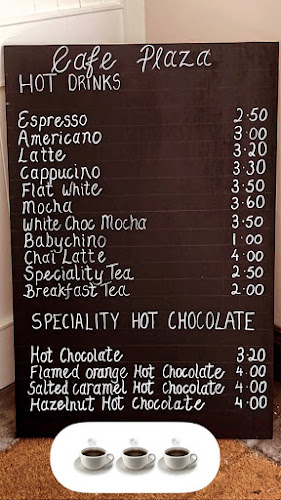 Cafe Plaza
HOT DRINKS
Espresso 2.50
Americano 3.00
Latte 3.20
Cappucino 3.30
Flat White 3.50
Mocha 3.60
White Choc Mocha 3.50
Babychino 1.00
Chaï Latte 4.00
Speciality Tea 2.50
Breakfast Tea 2.00
SPECIALITY HOT CHOCOLATE
Hot Chocolate 3.20
Flamed orange Hot Chocolate 4.00
Salted caramel Hot Chocolate 4.00
Hazelnut Hot Chocolate 4.00